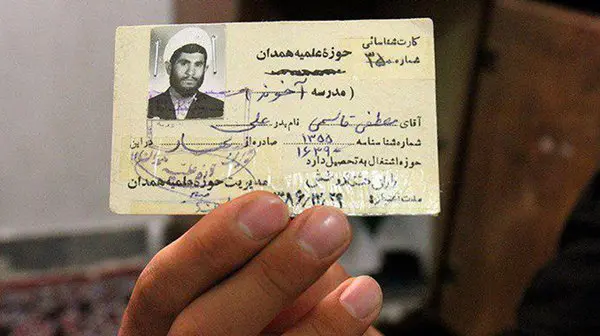 کارت شناسائی
شماره ۳۵۰
حوزهٔ علمیه همدان
( مدرسه آخوند
آقای مصطفی قاسمی نام پدر علی
شماره شناسنامه ۱۳۵۵ صادره از در این
حوزه اشتغال به تحصیل دارد
مدیریت حوزهٔ علمیه همدان
مدت اعتبار: